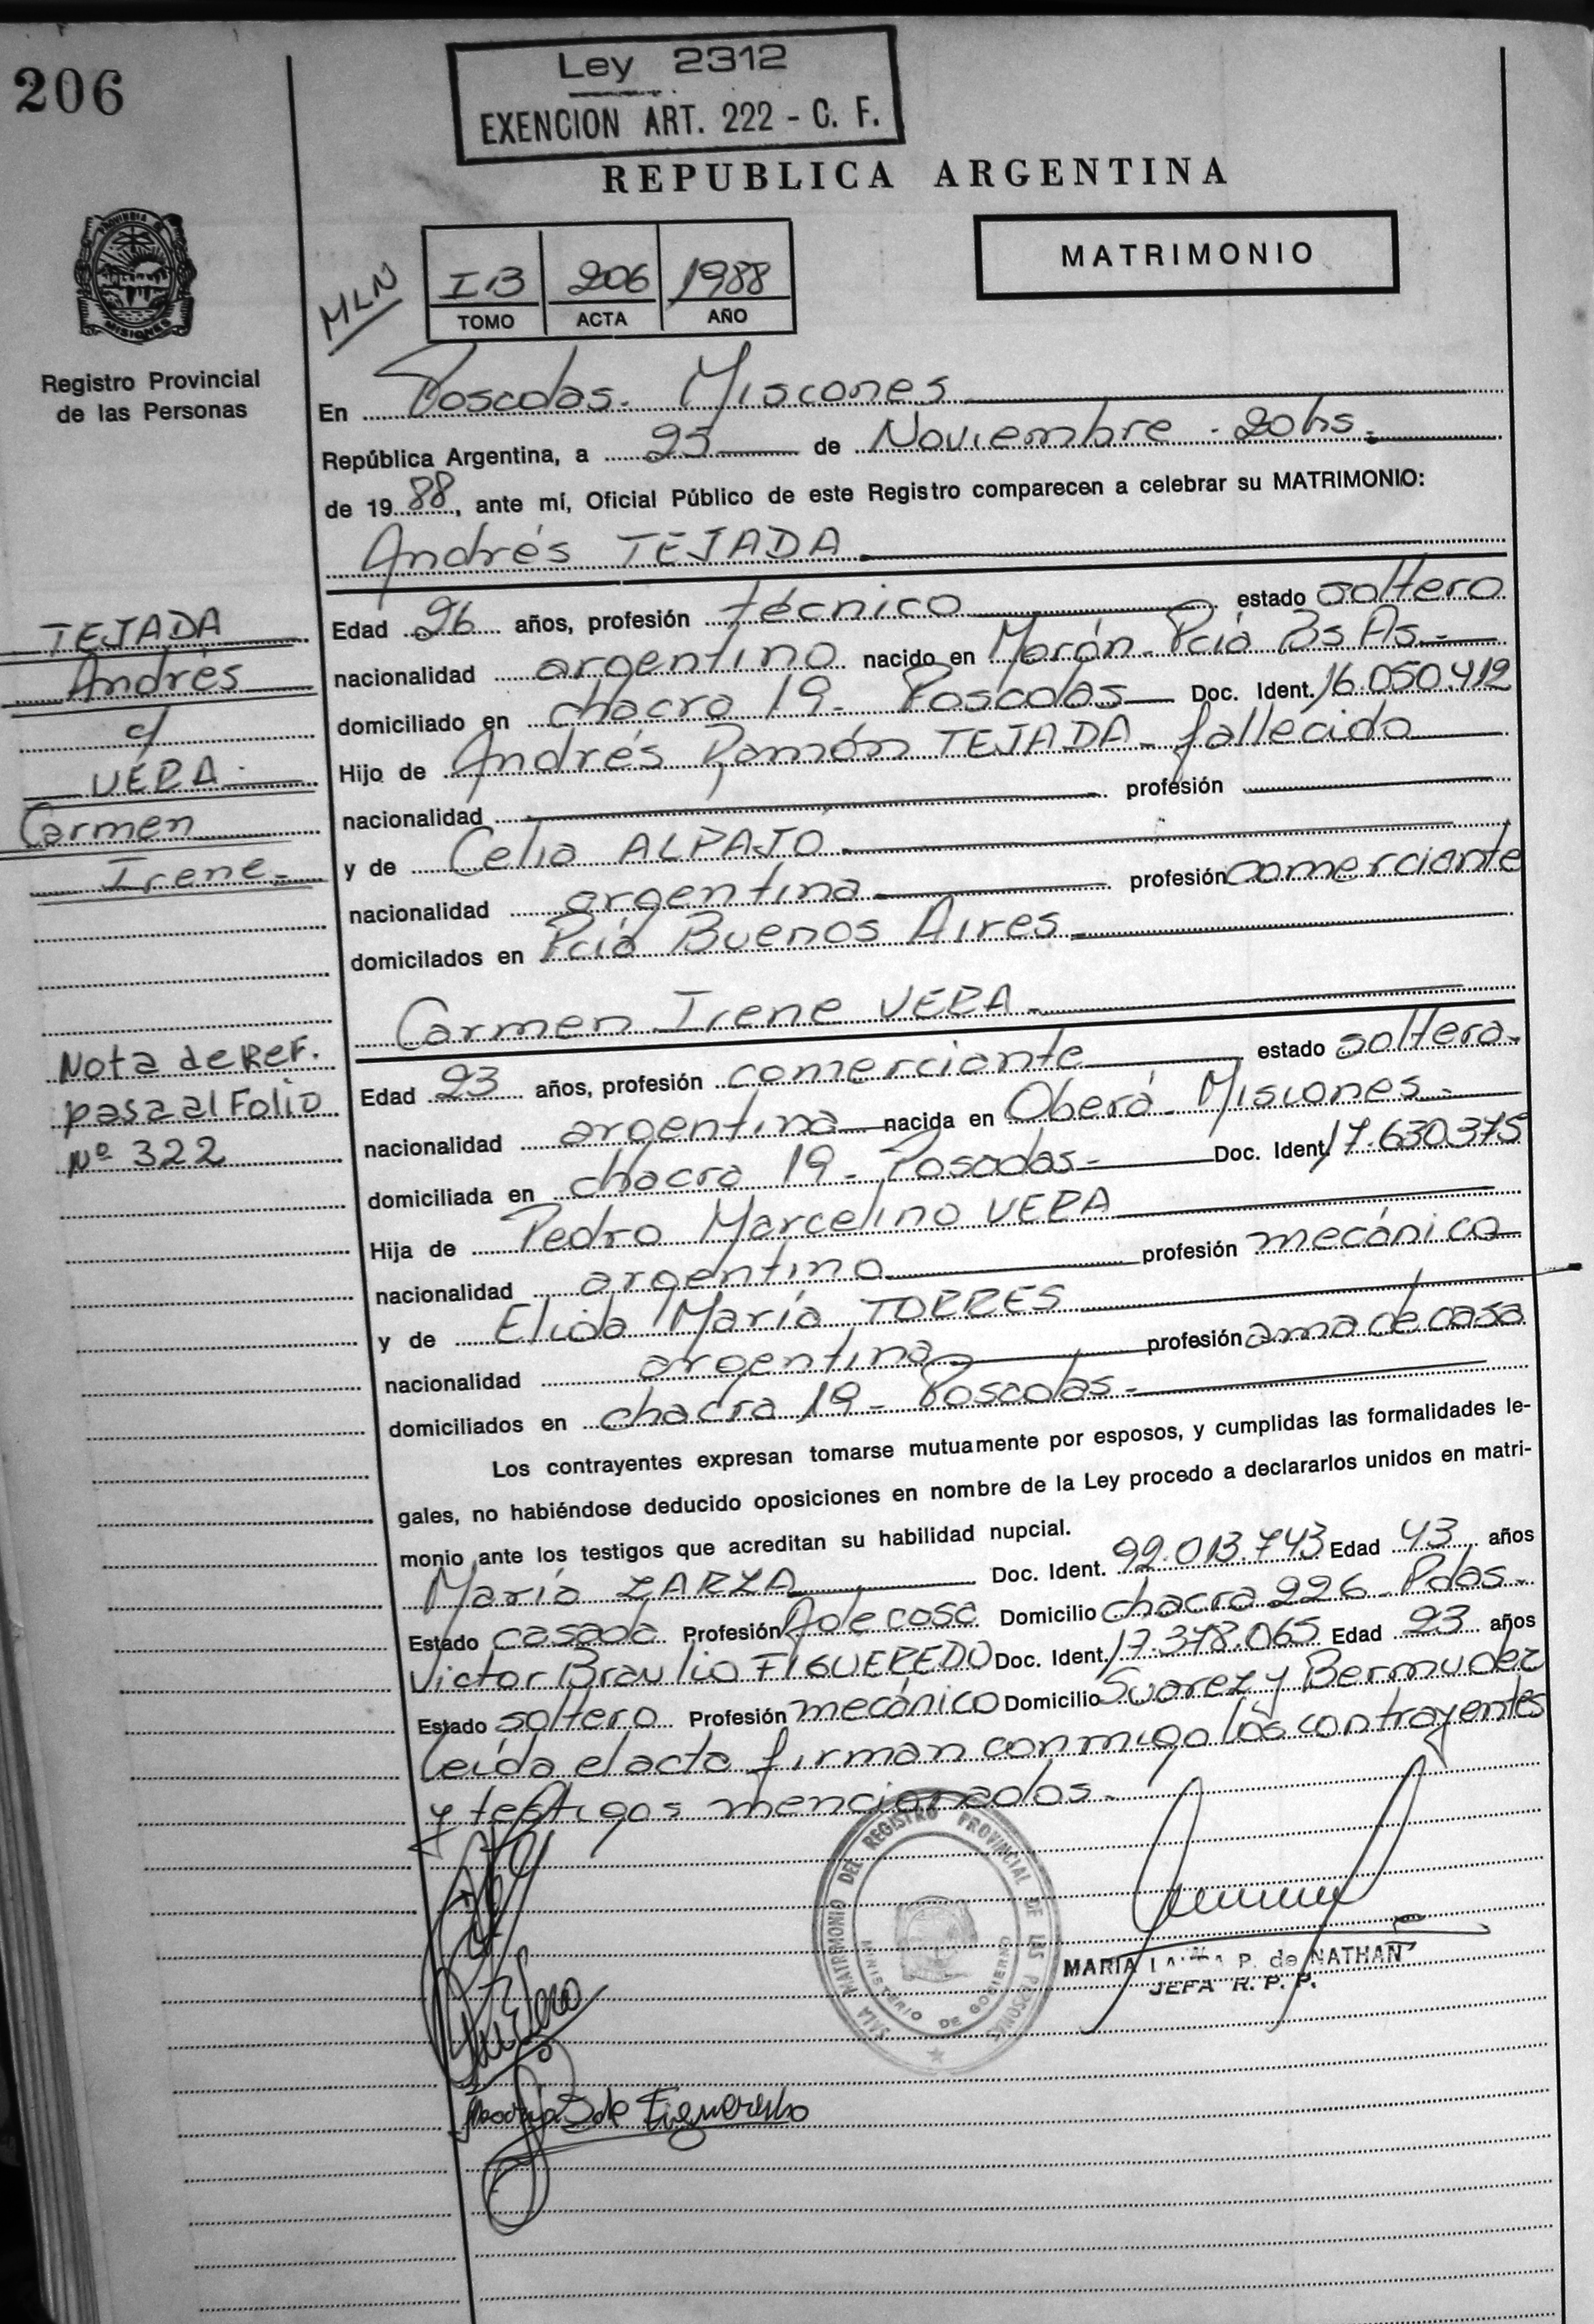 206
Ley 2312
EXENCION ART. 222 - C. F.
REPUBLICA ARGENTINA
MATRIMONIO
PROVINCIA
MISIONES
Registro Provincial
de las Personas
MLN
I B 206 1988
TOMO ACTA AÑO
En Posadas - Misiones
República Argentina, a 25 de Noviembre - 20hs.
de 19 88, ante mí, Oficial Público de este Registro comparecen a celebrar su MATRIMONIO:
Andrés TEJADA
TEJADA
Andrés
c/
VERA
Carmen
Irene
Edad 26 años, profesión técnico estado soltero
nacionalidad argentino nacido en Morón - Pcia Bs As
domiciliado en chacra 19 - Posadas Doc. Ident. 16.050.412
Hijo de Andrés Ramón TEJADA - fallecido
nacionalidad profesión
y de Celia
nacionalidad argentina profesión comerciante
domicilados en Pcia Buenos Aires
Carmen Irene VERA
Nota de Ref.
pasa al Folio
Nº 322
Edad 23 años, profesión comerciante estado soltera
nacionalidad argentina nacida en Oberá - Misiones
domiciliada en chacra 19 - Posadas Doc. Ident. 17.630.375
Hija de Pedro Marcelino VERA
nacionalidad argentino profesión mecánico
y de Elida María TORRES
nacionalidad argentina profesión ama de casa
domiciliados en chacra 19 - Posadas
Los contrayentes expresan tomarse mutuamente por esposos, y cumplidas las formalidades le-
gales, no habiéndose deducido oposiciones en nombre de la Ley procedo a declararlos unidos en matri-
monio ante los testigos que acreditan su habilidad nupcial.
María ZARZA Doc. Ident. 92.013.743 Edad 43 años
Estado casada Profesión A de casa Domicilio chacra 226 - Pdas
Victor Braulio FIGUEREDO Doc. Ident. 17.378.065 Edad 23 años
Estado soltero Profesión mecánico Domicilio Suarez y Bermudez
leída el acta firman conmigo los contrayentes
y testigos mencionados
SALA MATRIMONIO DEL REGISTRO PROVINCIAL DE LAS PERSONAS
MINISTERIO DE GOBIERNO
MARIA P. de NATHAN
JEFA R. P. P.
de Figueredo